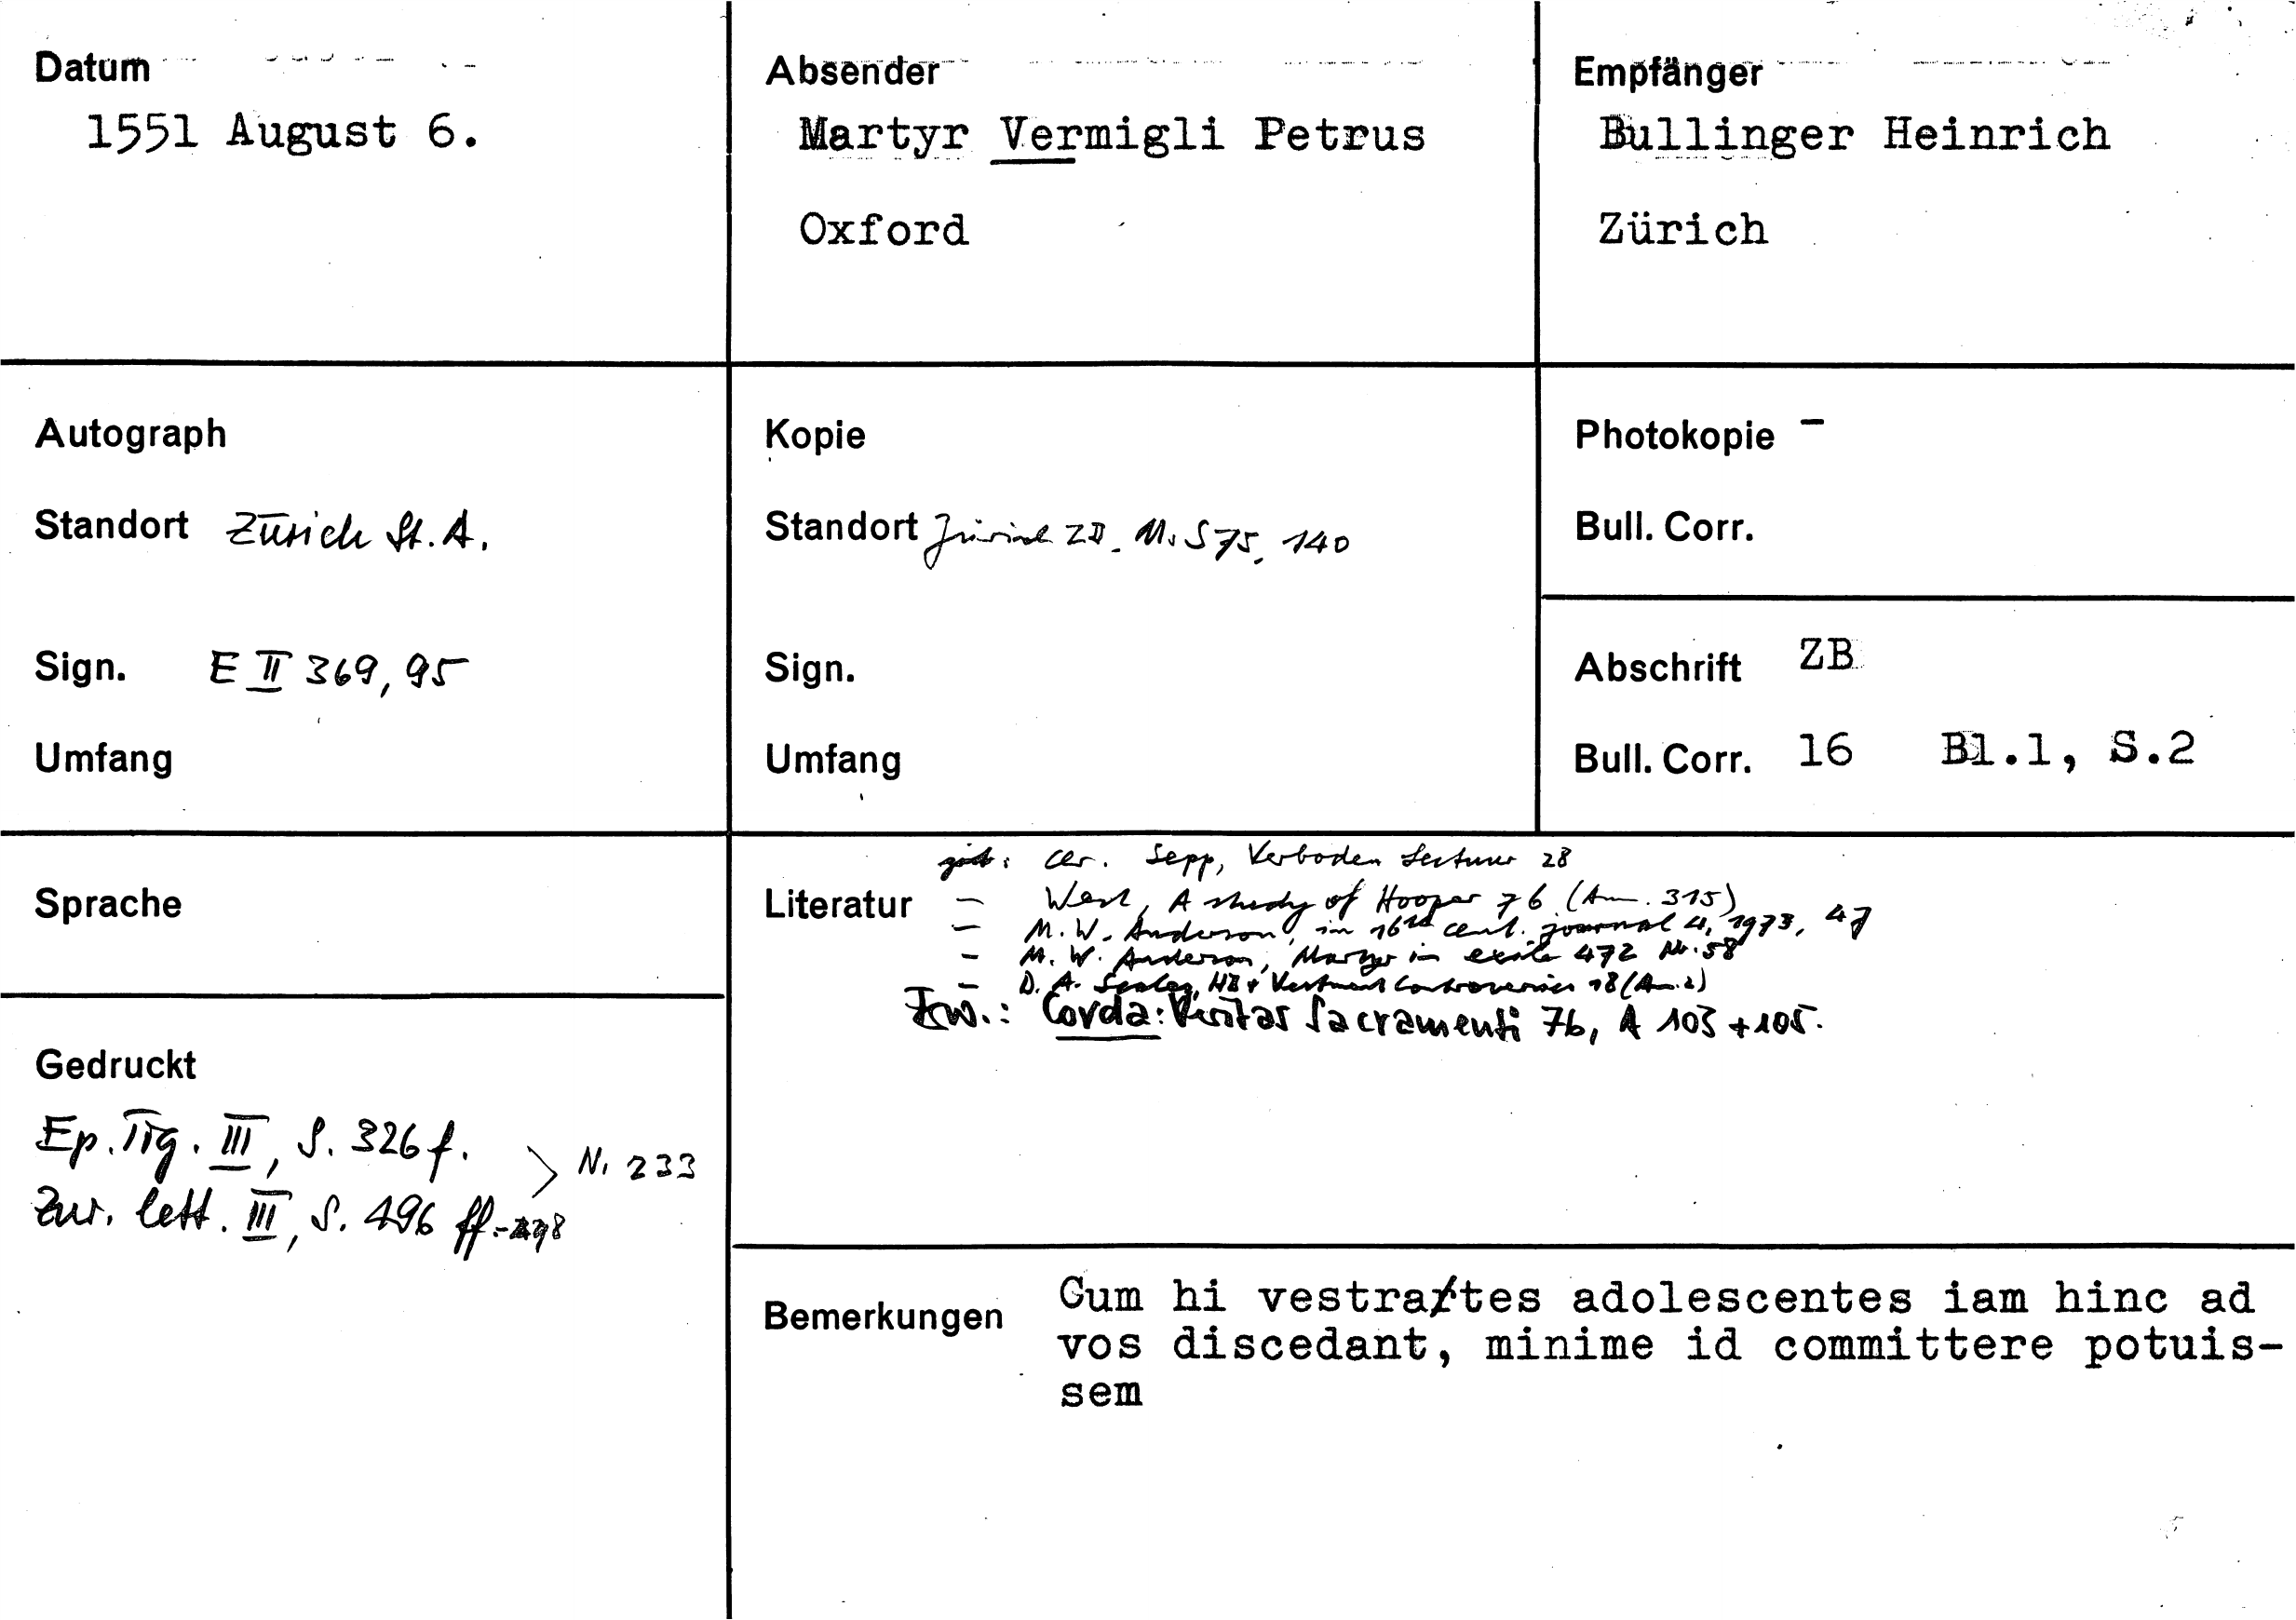 Datum
1551 August 6.
Absender
Martyr Vermigli Petrus
Oxford
Empfänger
Bullinger Heinrich
Zürich
Autograph
Standort Zürich St. A.
Sign. E II 369, 95
Umfang
Kopie
Standort Zürich ZB. Ms S 75, 140
Sign.
Umfang
Photokopie -
Bull. Corr.
Abschrift ZB
Bull. Corr. 16 Bl.1, S.2
Sprache
Gedruckt
Ep. Tig. III, S. 326 f.
Zur. lett. III, S. 496 ff. - 498
> N. 233
Literatur
Sepp, Verboden Lectuur 28
— West, A study of Hooper 76 (Anm. 315)
— M. W. Anderson, in 16th cent. journal 4, 1973, 47
— M. W. Anderson, Martyr in exile 472 Nr. 58
— D. A. HB + Vestment Controversies 18 (Anm. 2)
Corda: Veritas Sacramenti 76, A 103 + 105.
Bemerkungen
Cum hi vestrartes adolescentes iam hinc ad
vos discedant, minime id committere potuis-
sem